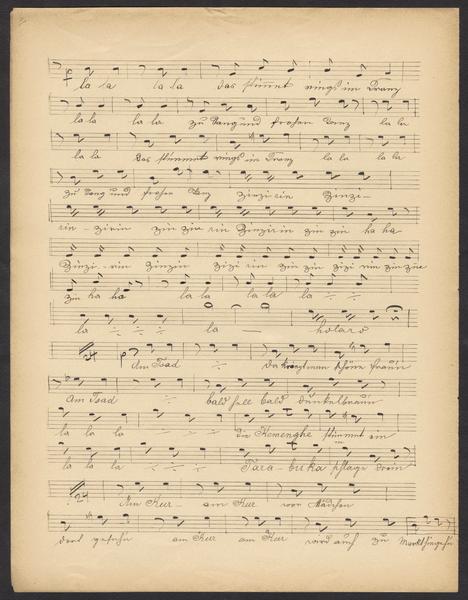 la la la la das stimmt rings im Kranz
la la la la zu Sang und frohen Tanz la la
la la das stimmt rings im Kranz la la la la
zu Sang und frohen Tanz Zinzirin Zinzi-
rin zirin zin zin rin Zinzirin zin zin ha ha
Zinzi-rin Zinzin zizi rin zin zin zizi rin zin zin
zin ha ha la la la la la
la la — holaro
24 Am Tsad Da schöne Frau'n
Am Tsad bald hell bald dunkelbraun
la la la die Kemenghe stimmt ein
la la la Tara-buka schlage drein
24 Am Kur- am Kur von Mädchen
dort am Kur am Kur wird auch zu Markt